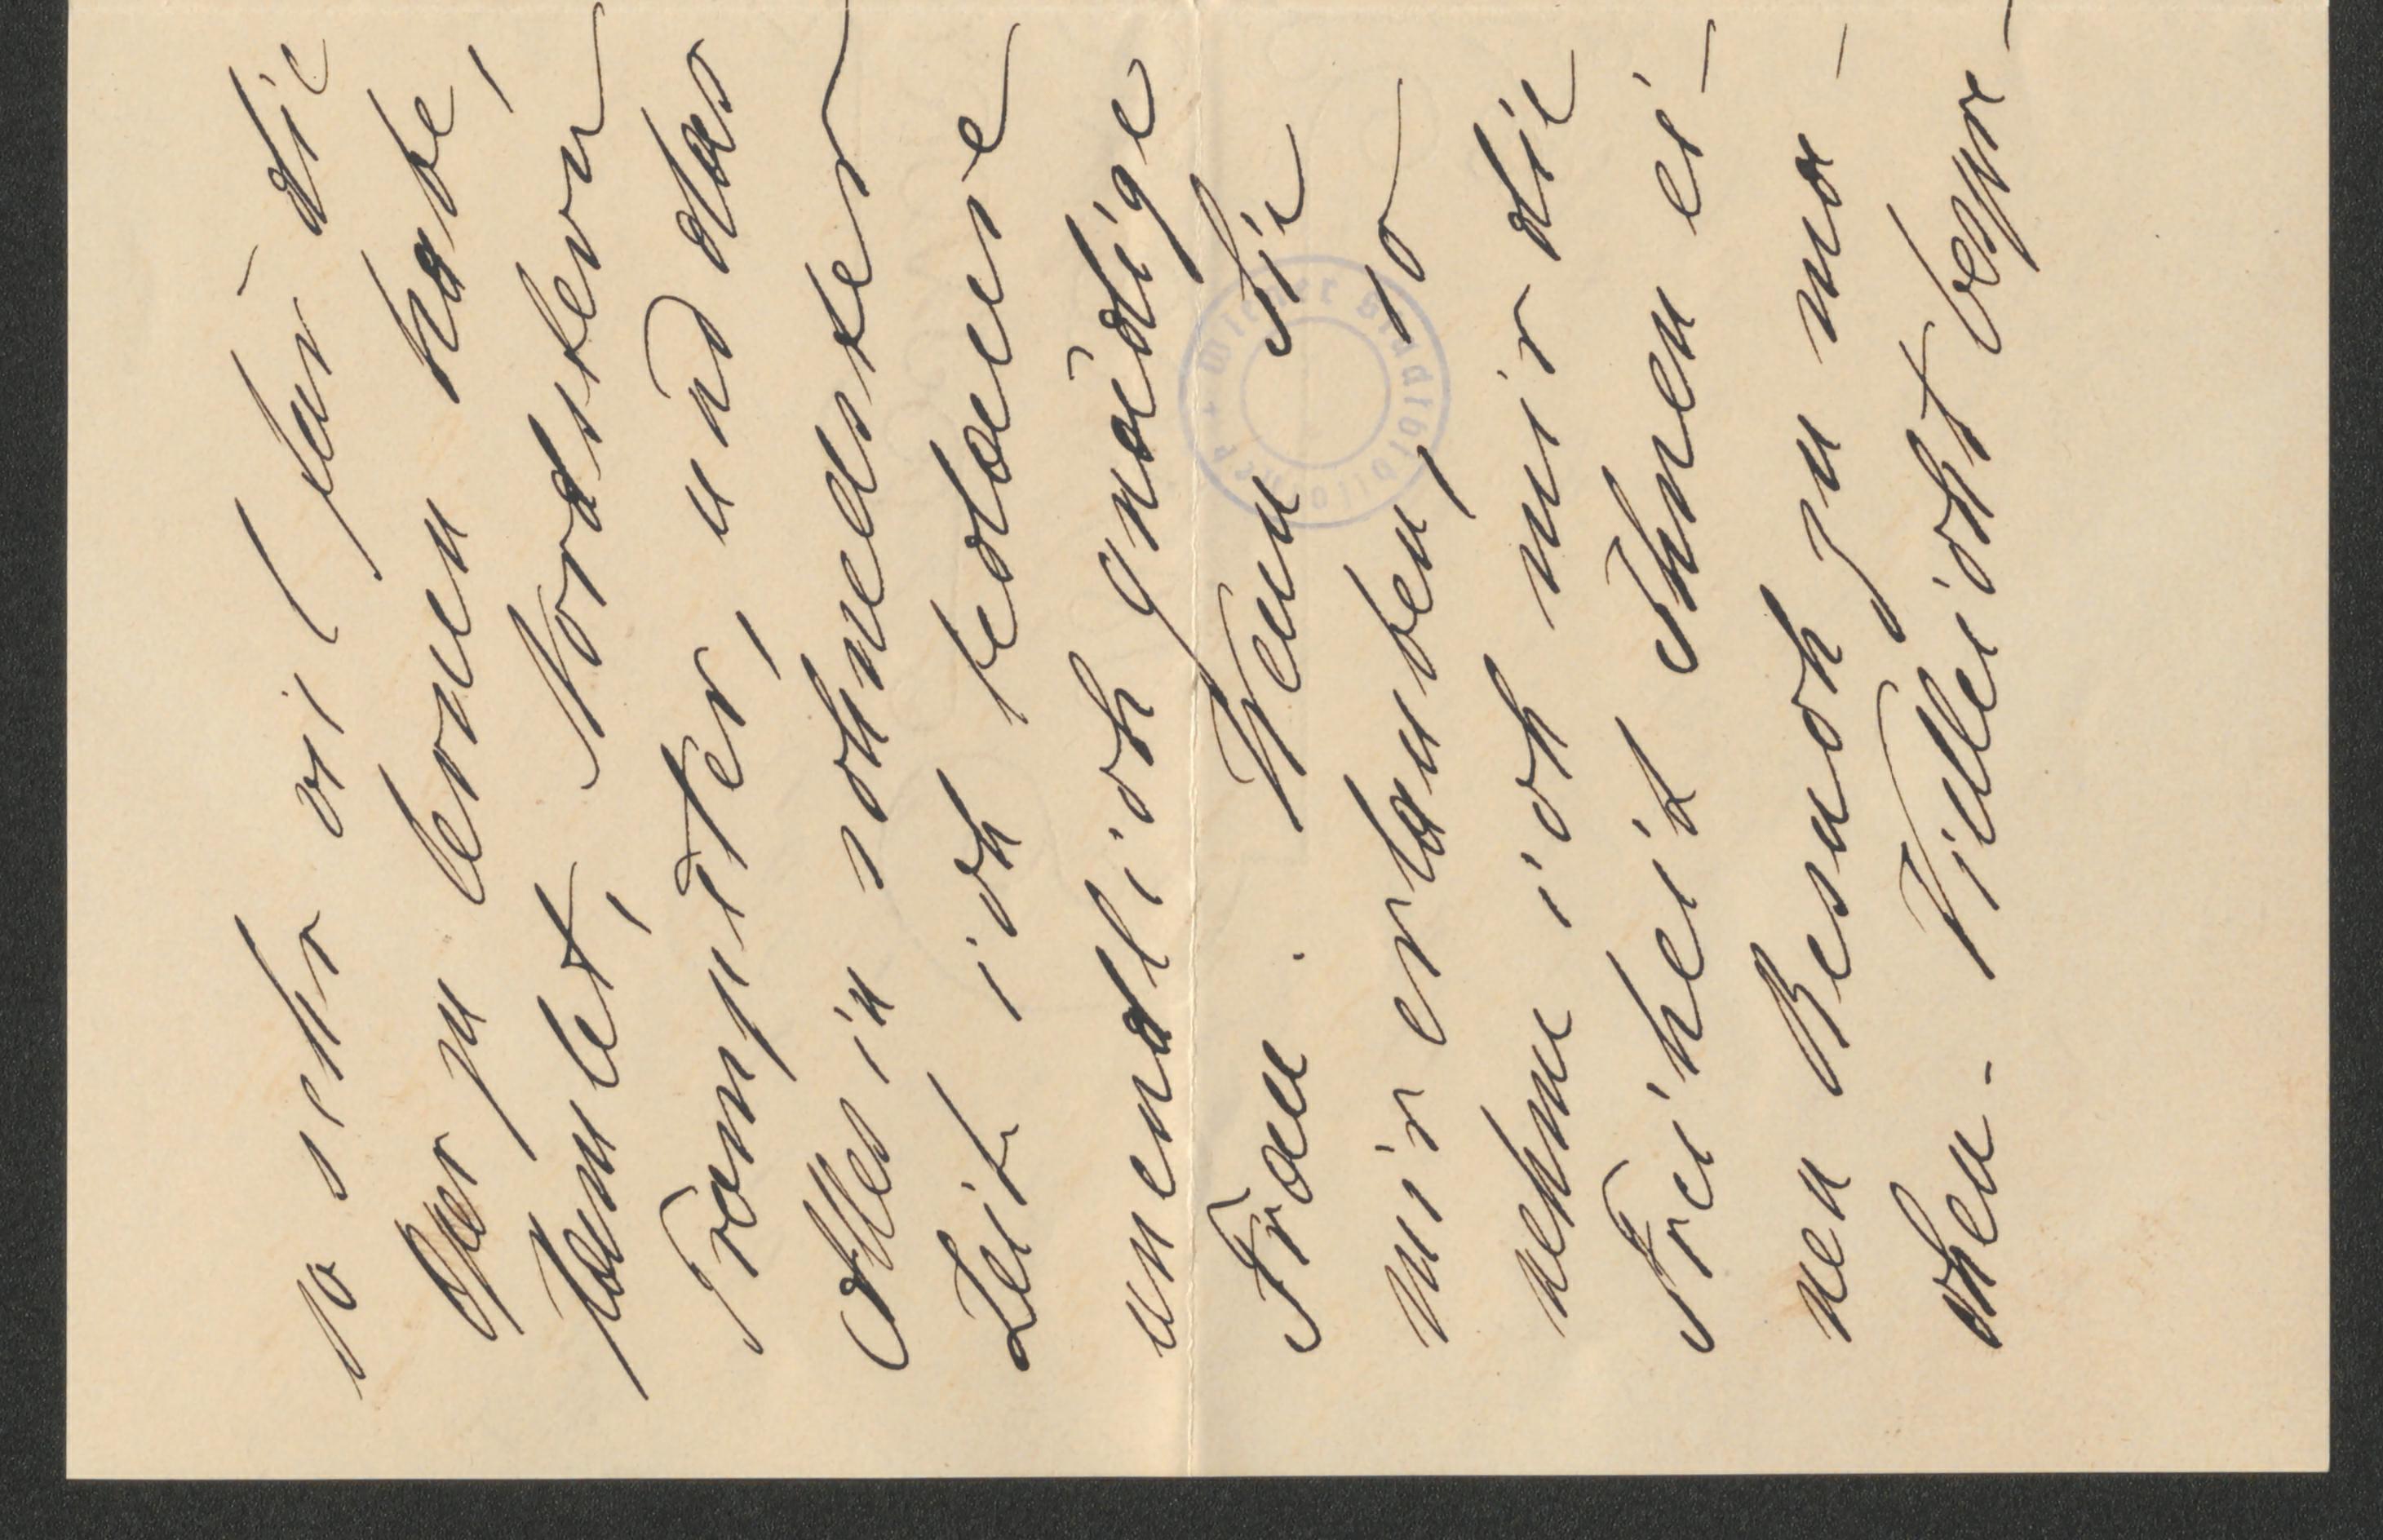 so sehr vil (für die
Oper zu lernen habe,
Hamlet, Nordstern
Trompeter, und das
Alles in schneester
Zeit. ich bedaure
unendlich gnädige
Frau. Wenn Sie
mir erlauben, so
nehme ich mir die
Freiheit Ihnen ei-
nen Besuch zu ma-
chen. Villeicht bespre-
Wiener Stadtbibliothek